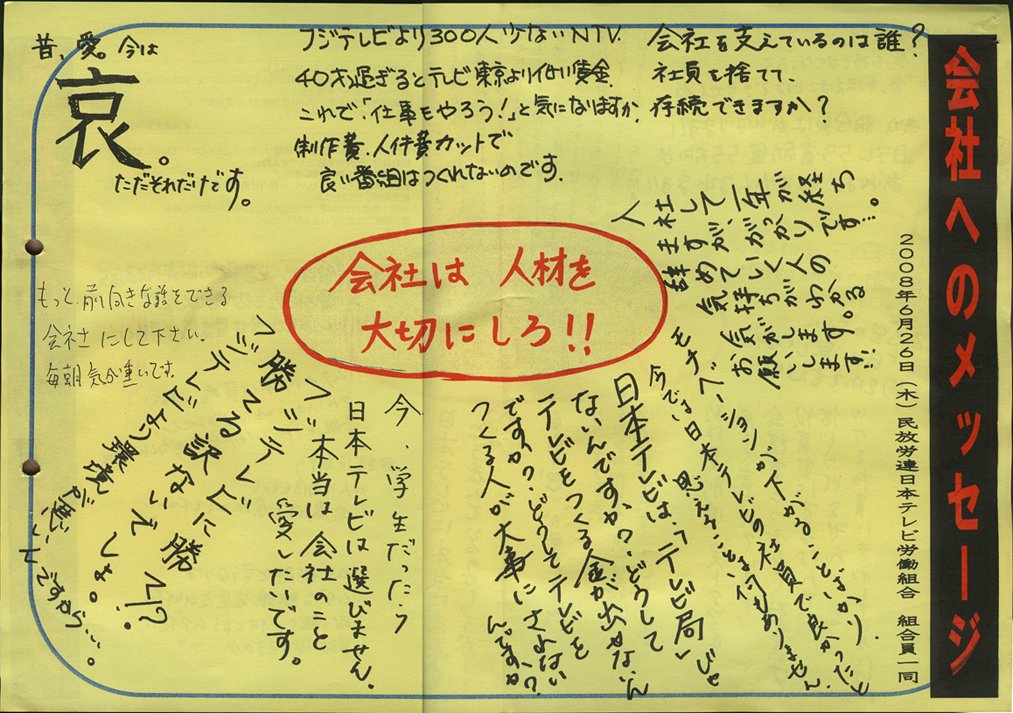 会社へのメッセージ
2008年6月26日（木）民放労連日本テレビ労働組合　組合員一同
会社を支えているのは誰？
社員を捨てて、
存続できますか？
フジテレビより300人少ないNTV.
40才過ぎるとテレビ東京より低い賃金.
これで「仕事をやろう!」と気になりますか.
制作費、人件費カットで
良い番組はつくれないのです.
昔、愛。今は
哀。
ただそれだけです。
入社して一年が経ち
ますが、がっかりです…。
辞めていく人の
気持ちがわかる
気がします。
お願いします!!
会社は 人材を
大切にしろ!!
もっと、前向きな話をできる
会社にして下さい.
毎朝気が重いです.
モチベーションが下がることばかり.
今では日本テレビの社員で良かったと
思えることは、何もありません.
日本テレビは、「テレビ局」じゃ
ないんですか?どうして
テレビをつくる金が出せないん
ですか?どうしてテレビを
つくる人が大事にされない
んですか?
今、学生だったら
日本テレビは選びません.
本当は会社のこと
愛したいです。
フジテレビに
勝てる訳ないでしょ!?
フジテレビより環境が悪いんですから…。